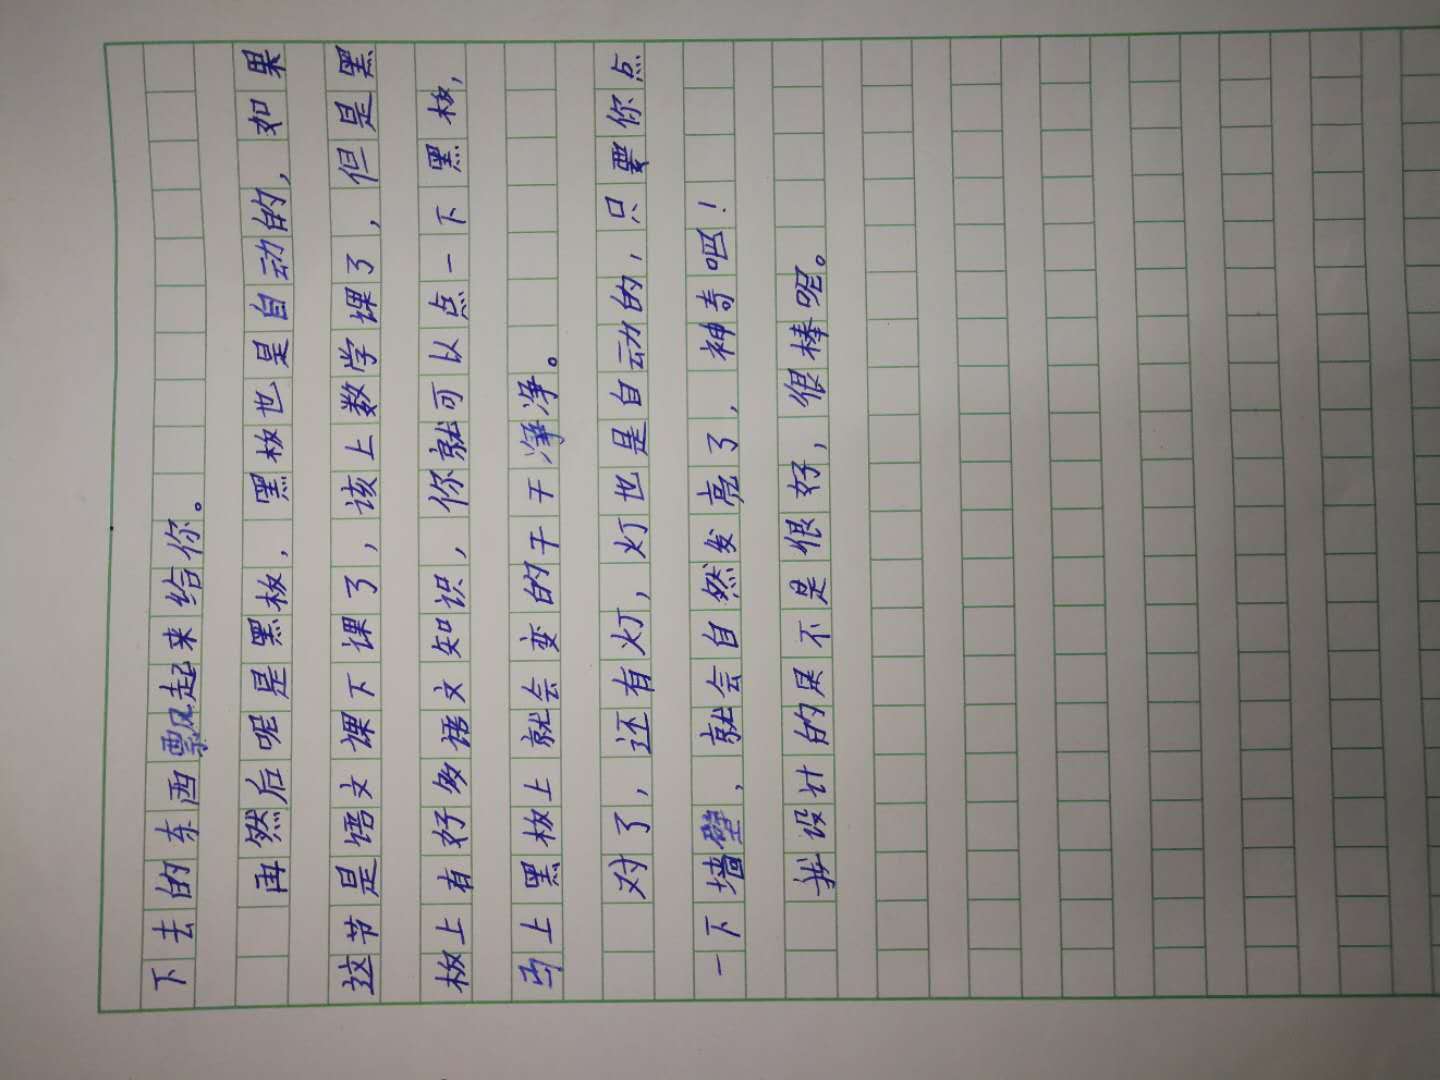 下去的东西飘起来给你。
再然后呢是黑板，黑板也是自动的，如果
这节是语文课下课了，该上数学课了，但是黑
板上有好多语文知识，你就可以点一下黑板，
马上黑板上就会变的干干净净。
对了，还有灯，灯也是自动的，只要你点
一下墙壁，就会自然发亮了，神奇吧！
我设计的是不是很好，很棒呢。